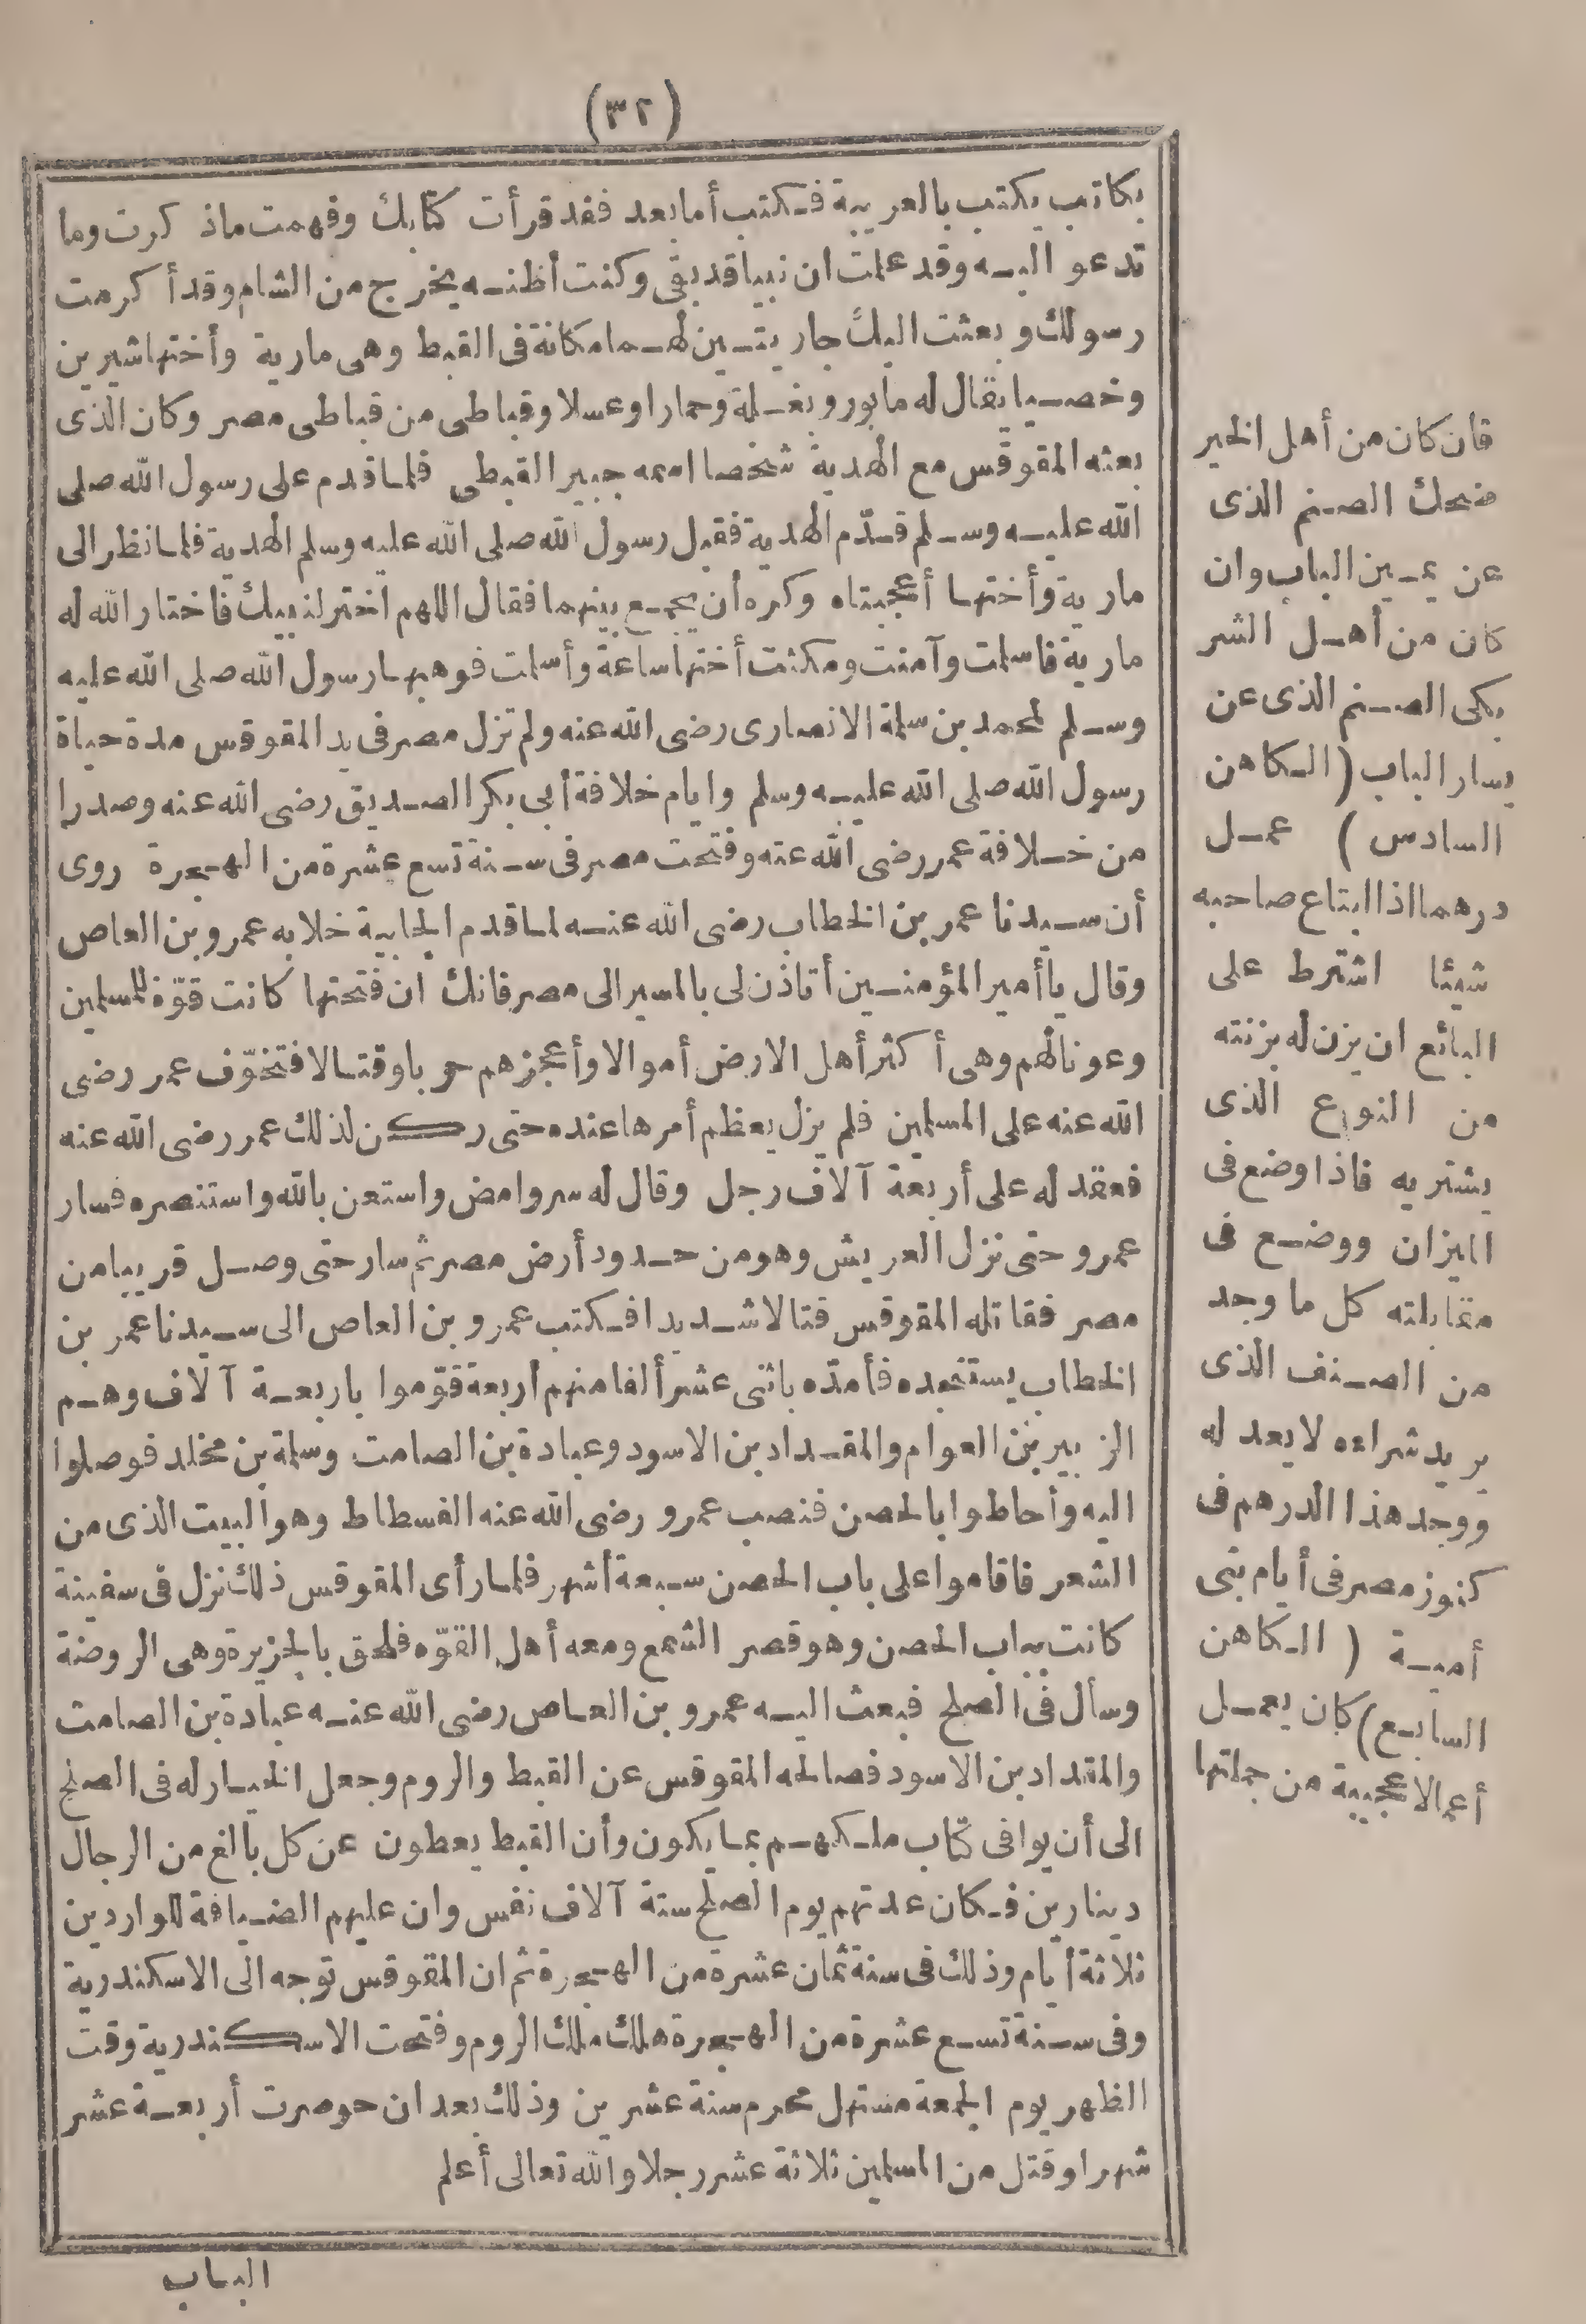 (٣٢)
بكاتب يكتب بالعربية فكتب أما بعد فقد قرأت كتابك وفهمت ماذكرت وما
تدعو اليه وقد علمت ان نبيا قد بقى وكنت أظنه يخرج من الشام وقد أكرمت
رسولك وبعثت اليك جاريتين لهما مكانة فى القبط وهى مارية وأختها شيرين
وخصيا يقال له مابور وبغلة وحمارا وعسلا وقباطى من قباطى مصر وكان الذى
بعثه المقوقس مع الهدية شخصا اسمه جبير القبطى فلما قدم على رسول الله صلى
الله عليه وسلم قدّم الهدية فقبل رسول الله صلى الله عليه وسلم الهدية فلما نظر الى
مارية وأختها أعجبتاه وكره أن يجمع بينهما فقال اللهم اختر لنبيك فاختار الله له
مارية فاسلمت وآمنت ومكثت أختها ساعة وأسلمت فوهبها رسول الله صلى الله عليه
وسلم لمحمد بن سلمة الانصارى رضى الله عنه ولم تزل مصر فى يد المقوقس مدة حياة
رسول الله صلى الله عليه وسلم وايام خلافة أبى بكر الصديق رضى الله عنه وصدرا
من خلافة عمر رضى الله عنه وفتحت مصر فى سنة تسع عشرة من الهجرة روى
أن سيدنا عمر بن الخطاب رضى الله عنه لما قدم الجابية خلا به عمرو بن العاص
وقال يا أمير المؤمنين أتأذن لى بالمسير الى مصر فانك ان فتحتها كانت قوّة للمسلمين
وعونا لهم وهى أكثر أهل الارض أموالا وأعجزهم حربا وقتالا فتخوّف عمر رضى
الله عنه على المسلمين فلم يزل يعظم أمرها عنده حتى ركن لذلك عمر رضى الله عنه
فعقد له على أربعة آلاف رجل وقال له سر وامض واستعن بالله واستنصره فسار
عمرو حتى نزل العريش وهو من حدود أرض مصر ثم سار حتى وصل قريبا من
مصر فقاتله المقوقس قتالا شديدا فكتب عمرو بن العاص الى سيدنا عمر بن
الخطاب يستنجده فأمدّه باثنى عشر ألفا منهم أربعة قوّموا باربعة آلاف وهم
الزبير بن العوام والمقداد بن الاسود وعبادة بن الصامت وسلمة بن مخلد فوصلوا
اليه وأحاطوا بالحصن فنصب عمرو رضى الله عنه الفسطاط وهو البيت الذى من
الشعر فاقاموا على باب الحصن سبعة أشهر فلما رأى المقوقس ذلك نزل فى سفينة
كانت بباب الحصن وهو قصر الشمع ومعه أهل القوّه فلحق بالجزيرة وهى الروضة
وسأل فى الصلح فبعث اليه عمرو بن العاص رضى الله عنه عبادة بن الصامت
والمقداد بن الاسود فصالحه المقوقس عن القبط والروم وجعل الخيار له فى الصلح
الى أن يوافى كتاب ملكهم بما يكون وأن القبط يعطون عن كل بالغ من الرجال
دينارين فكان عدتهم يوم الصلح ستة آلاف نفس وان عليهم الضيافة للواردين
ثلاثة أيام وذلك فى سنة ثمان عشرة من الهجرة ثم ان المقوقس توجه الى الاسكندرية
وفى سنة تسع عشرة من الهجرة هلك ملك الروم وفتحت الاسكندرية وقت
الظهر يوم الجمعة مستهل محرم سنة عشرين وذلك بعد ان حوصرت أربعة عشر
شهرا وقتل من المسلمين ثلاثة عشر رجلا والله تعالى أعلم
فان كان من أهل الخير
ضحك الصنم الذى
عن يمين الباب وان
كان من أهل الشر
بكى الصنم الذى عن
يسار الباب (الكاهن
السادس) عمل
درهما اذا ابتاع صاحبه
شيئا اشترط على
البائع ان يزن له بزنته
من النوع الذى
يشتريه فاذا وضع فى
الميزان ووضع فى
مقابلته كل ما وجد
من الصنف الذى
يريد شراءه لا يعد له
ووجد هذا الدرهم فى
كنوز مصر فى أيام بنى
أمية (الكاهن
السابع) كان يعمل
أعمالا عجيبة من جملتها
الباب